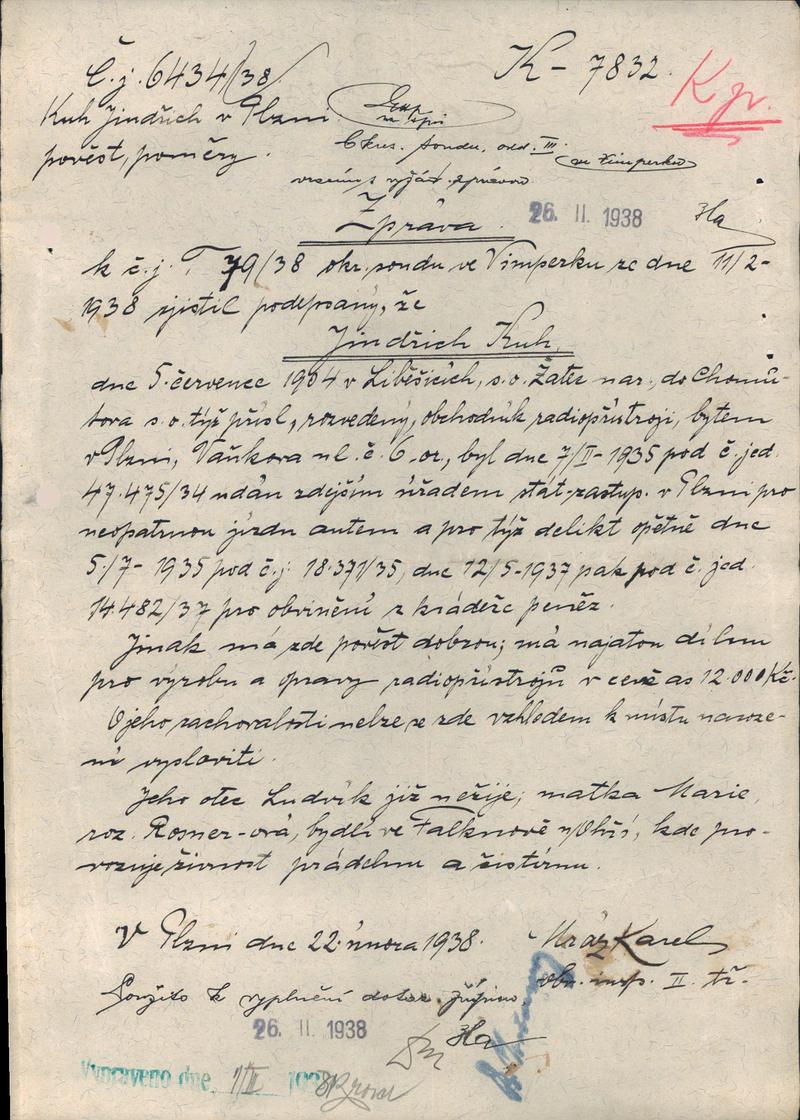 Č.j. 6434/38
K – 7832.
K pr.
Kuh Jindřich v Plzni
pověst, poměry.
Okres. soudu, odd. III.
ve Vimperku
vracím s vyžád. zprávou
Zpráva.
26. II. 1938
Ha
k č.j. T 79/38 okr. soudu ve Vimperku ze dne 11/2-
1938 zjistil podepsaný, že
Jindřich Kuh,
dne 5. července 1904 v Liběšicích, s.o. Žatec nar., do Chomu-
tova s.o. týž přísl., rozvedený, obchodník radiopřístroji, bytem
v Plzni, Vaňkova ul. č. 6. or., byl dne 7/II- 1935 pod č. jed.
47.475/34 udán zdejším úřadem stát. zastup. v Plzni pro
neopatrnou jízdu autem a pro týž delikt opětně dne
5./7- 1935 pod č.j. 18.371/35, dne 12/5-1937 pak pod č. jed.
14.482/37 pro obvinění z krádeže peněz.
Jinak má zde pověst dobrou; má najatou dílnu
pro výrobu a opravy radiopřístrojů v ceně as 12.000 Kč.
O jeho zachovalosti nelze se zde vzhledem k místu naroze-
ní vysloviti.
Jeho otec Ludvík již nežije; matka Marie,
roz. Rosner-ová, bydlí ve Falknově n/Ohří, kde pro-
vozuje živnost prádelnu a čistírnu.
V Plzni dne 22. února 1938.
Mráz Karel
obv. insp. II. tř.
Použito k vyplnění dotaz.
26. II. 1938
Ha
Vypraveno dne 1/III 1938